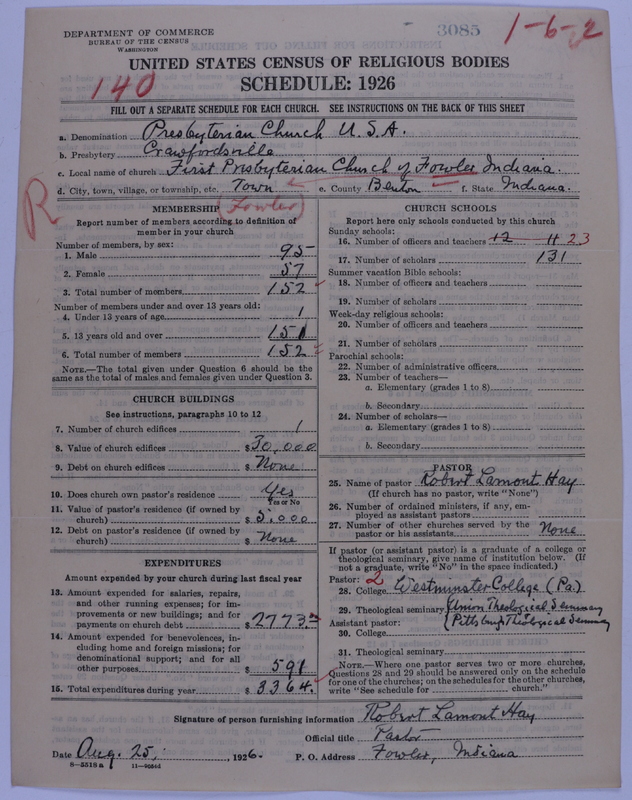 DEPARTMENT OF COMMERCE
BUREAU OF THE CENSUS
WASHINGTON
3085
1-6-2
140
UNITED STATES CENSUS OF RELIGIOUS BODIES
SCHEDULE: 1926
FILL OUT A SEPARATE SCHEDULE FOR EACH CHURCH. SEE INSTRUCTIONS ON THE BACK OF THIS SHEET
a. Denomination Presbyterian Church U.S.A.
b. Presbytery Crawfordsville
c. Local name of church First Presbyterian Church of Fowler Indiana.
d. City, town, village, or township, etc. Town e. County Benton f. State Indiana.
R
MEMBERSHIP (Fowler)
Report number of members according to definition of member in your church
Number of members, by sex:
1. Male 95
2. Female 57
3. Total number of members 152
Number of members under and over 13 years old:
4. Under 13 years of age 1
5. 13 years old and over 151
6. Total number of members 152
NOTE.—The total given under Question 6 should be the same as the total of males and females given under Question 3.
CHURCH BUILDINGS
See instructions, paragraphs 10 to 12
7. Number of church edifices 1
8. Value of church edifices $ 30,000
9. Debt on church edifices $ None
10. Does church own pastor's residence Yes
Yes or No
11. Value of pastor's residence (if owned by church) $ 5,000
12. Debt on pastor's residence (if owned by church) $ None
EXPENDITURES
Amount expended by your church during last fiscal year
13. Amount expended for salaries, repairs, and other running expenses; for improvements or new buildings; and for payments on church debt $ 2773
14. Amount expended for benevolences, including home and foreign missions; for denominational support; and for all other purposes $ 591
15. Total expenditures during year $ 3364.
CHURCH SCHOOLS
Report here only schools conducted by this church
Sunday schools:
16. Number of officers and teachers 12 11 23
17. Number of scholars 131
Summer vacation Bible schools:
18. Number of officers and teachers
19. Number of scholars
Week-day religious schools:
20. Number of officers and teachers
21. Number of scholars
Parochial schools:
22. Number of administrative officers
23. Number of teachers—
a. Elementary (grades 1 to 8)
b. Secondary
24. Number of scholars—
a. Elementary (grades 1 to 8)
b. Secondary
PASTOR
25. Name of pastor Robert Lamont Hay
(If church has no pastor, write "None")
26. Number of ordained ministers, if any, employed as assistant pastors
27. Number of other churches served by the pastor or his assistants None
If pastor (or assistant pastor) is a graduate of a college or theological seminary, give name of institution below. (If not a graduate, write "No" in the space indicated.)
Pastor: 2
28. College Westminster College (Pa.)
29. Theological seminary (Union Theological Seminary
Assistant pastor: (Pittsburgh Theological Seminary
30. College
31. Theological seminary
NOTE.—Where one pastor serves two or more churches, Questions 28 and 29 should be answered only on the schedule for one of the churches; on the schedules for the other churches, write "See schedule for church."
Signature of person furnishing information Robert Lamont Hay
Official title Pastor
Date Aug. 25, 1926. P. O. Address Fowler, Indiana
8-5518a